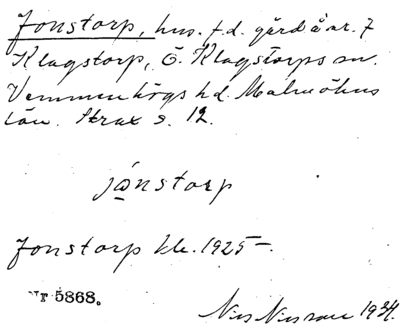 Jonstorp, hus. f.d. gård å nr. 7
Klagstorp, Ö. Klagstorps sn.
Vemmenhögs hd. Malmöhus
län. Strax s. 12.
jånstorp
Jonstorp kle. 1925 –.
NF 5868.
Nils Nilsson 1934.